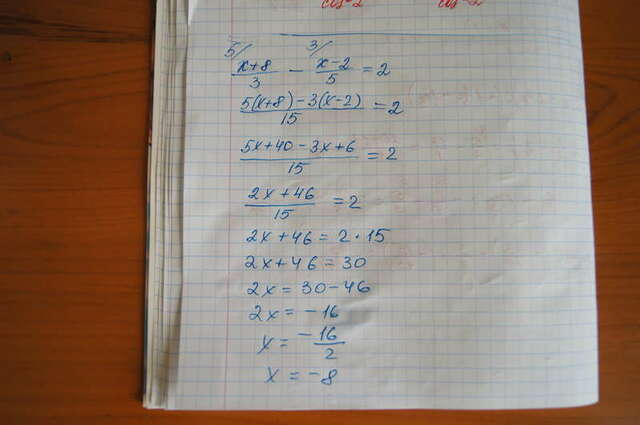 5/ 3/
x+8/3 − x−2/5 = 2
5(x+8)−3(x−2)/15 = 2
5x+40−3x+6/15 = 2
2x+46/15 = 2
2x+46 = 2·15
2x+46 = 30
2x = 30−46
2x = −16
x = −16/2
x = −8